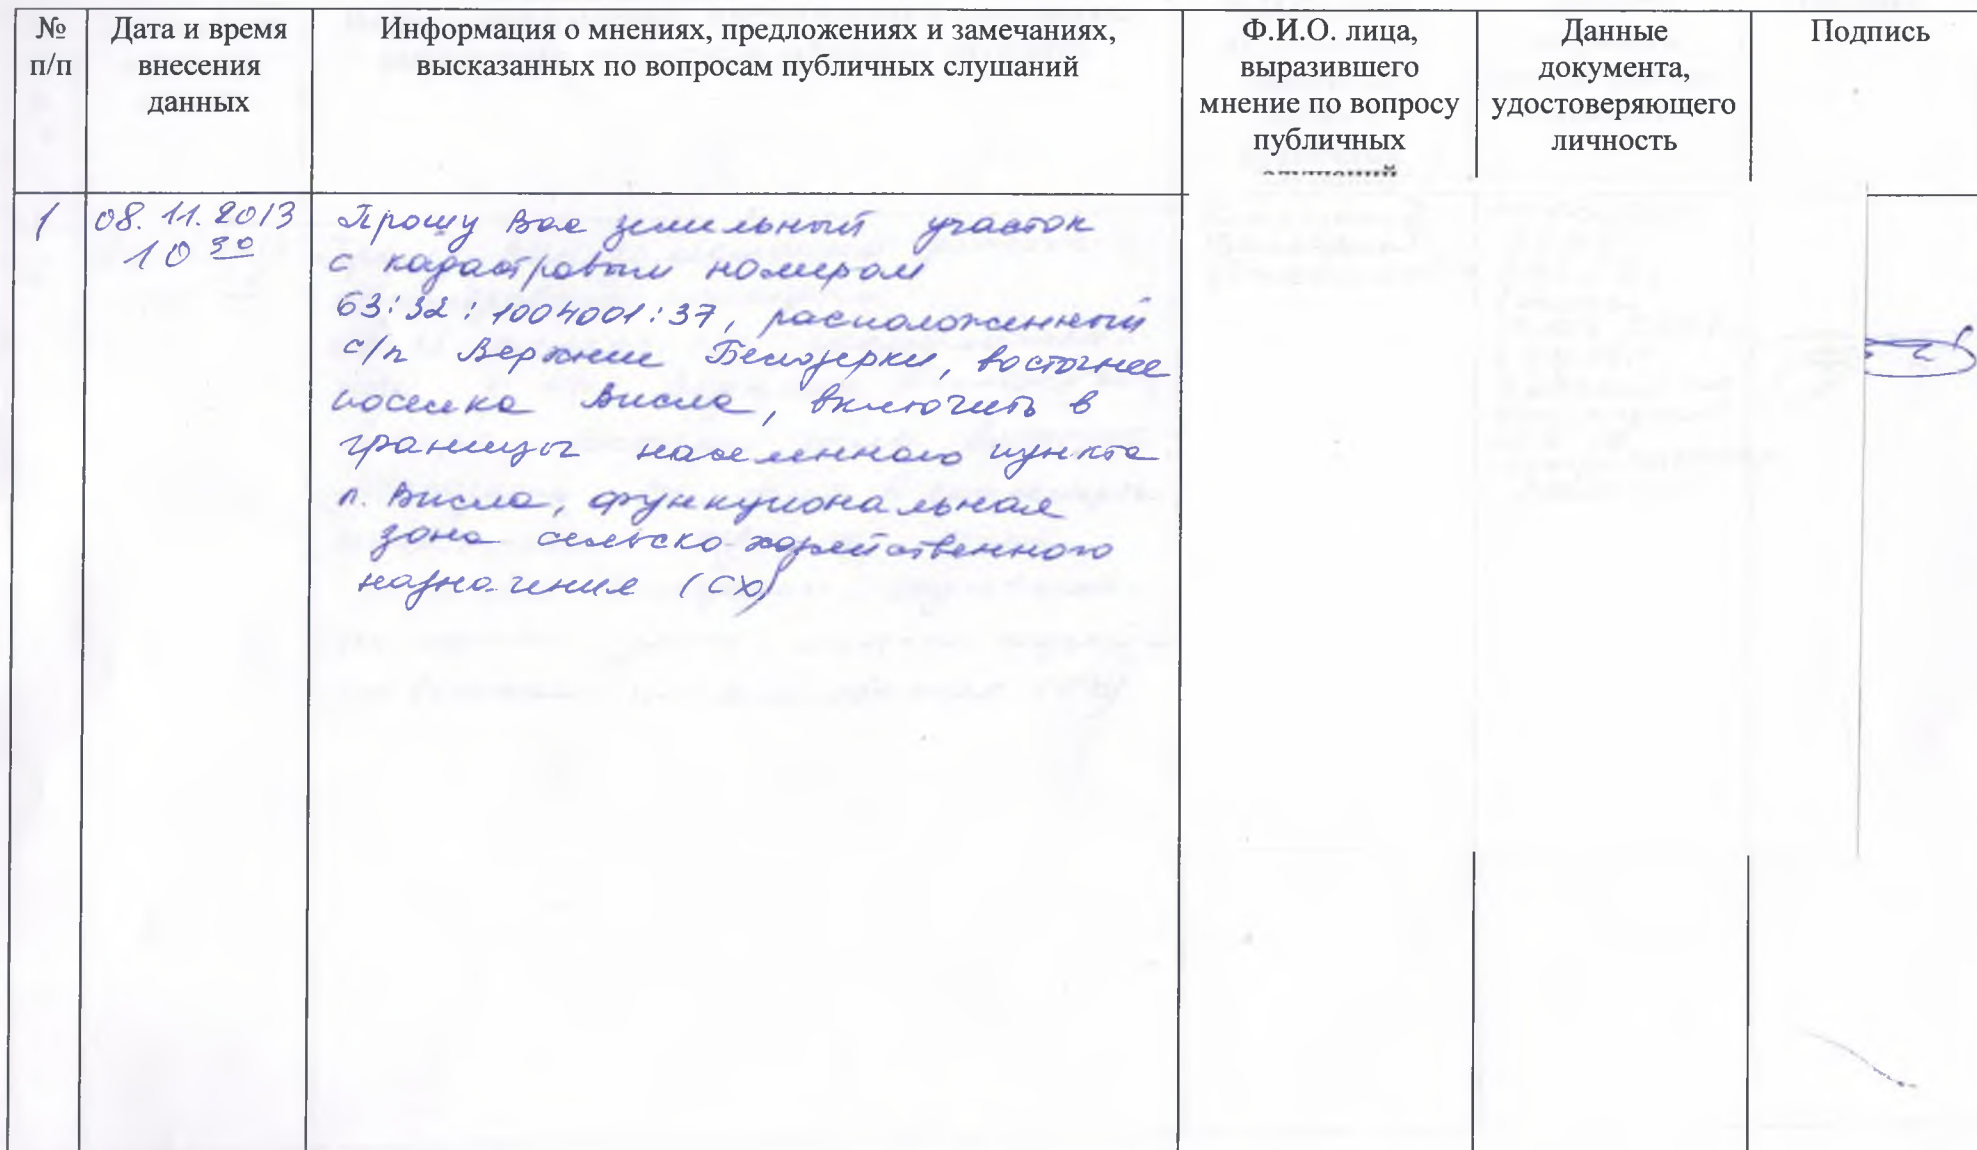 № п/п
Дата и время внесения данных
Информация о мнениях, предложениях и замечаниях, высказанных по вопросам публичных слушаний
Ф.И.О. лица, выразившего мнение по вопросу публичных слушаний
Данные документа, удостоверяющего личность
Подпись
1
08.11.2013
10 30
Прошу Вас земельный участок
с кадастровым номером
63:32:1004001:37, расположенный
с/п Верхние Белозерки, восточнее
поселка Висла, включить в
границы населенного пункта
п. Висла, функциональная
зона сельскохозяйственного
назначения (СХ)